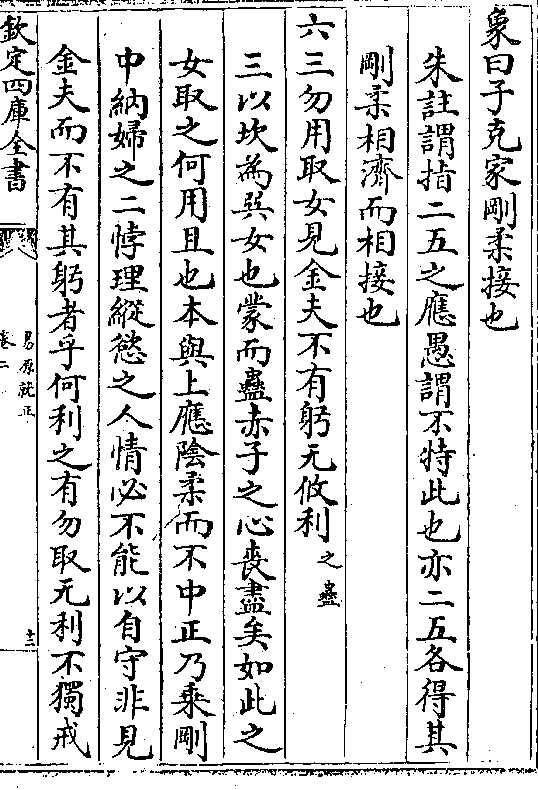 象曰子克家剛柔接也
朱註謂指二五之應愚謂不特此也亦二五各得其
剛柔相濟而相接也
六三勿用取女見金夫不有躬无攸利之蠱
三以坎為巽女也蒙而蠱赤子之心喪盡矣如此之
女取之何用且也本與上應陰柔而不中正乃乘剛
中納婦之二悖理縱慾之人情必不能以自守非見
金夫而不有其躬者乎何利之有勿取无利不獨戒
欽定四庫全書
易原就正
卷二
十三